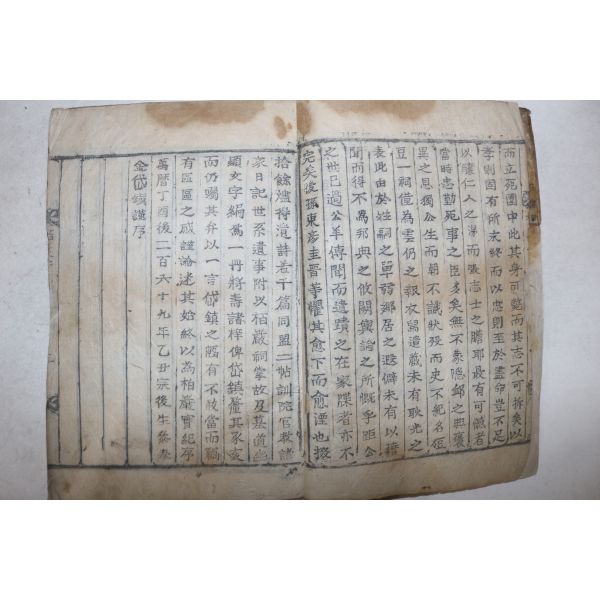 而立死圍中此其身可斃而其志不可拆矣以
孝則固有所未終而以忠則至於盡命豈不足
以膺仁人之
而張志士之膽耶最有可慨者
當時忠勤死事之臣多矣無不蒙隱卹之典褒
異之恩獨公生而朝不議狀歿而史不紀名侄
豆一祠僅為雲仍之報衣舃遺藏未有耿光之
表此由於姓嗣之單弱鄉居之遐僻未有以籍
聞而得不為邦典之攸闕輿論之所慨乎距公
之世已過公羊傳聞而遺蹟之在家牒者亦不
完矣後孫東彦圭晋等懼其愈下而愈湮也掇
拾餘燼得遺詩若干篇同盟二帖訓院官敎諸
家日記世系遺事附以柏巖祠掌故及墓道幽
顯文字編為一冊將壽諸梓俾岱鎮釐其豕亥
而仍囑其弁以一言岱鎮之陋有不敢當而竊
有區區之感謹論述其始終以為柏巖實紀序
萬曆丁酉後二百六十九年乙丑宗後生
金岱鎮謹序